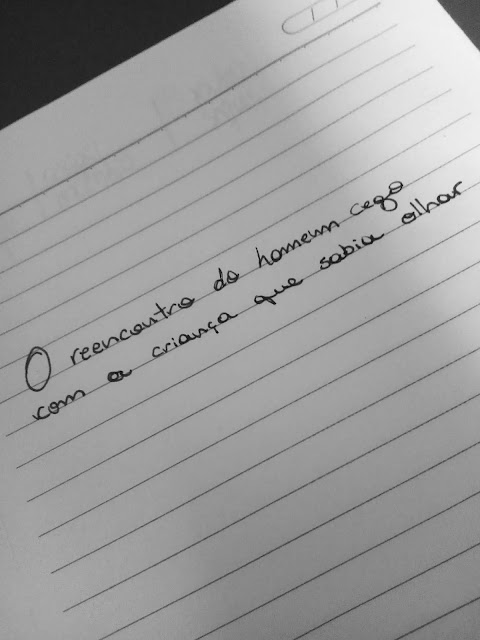 O reencontro do homem cego
com a criança que sabia olhar